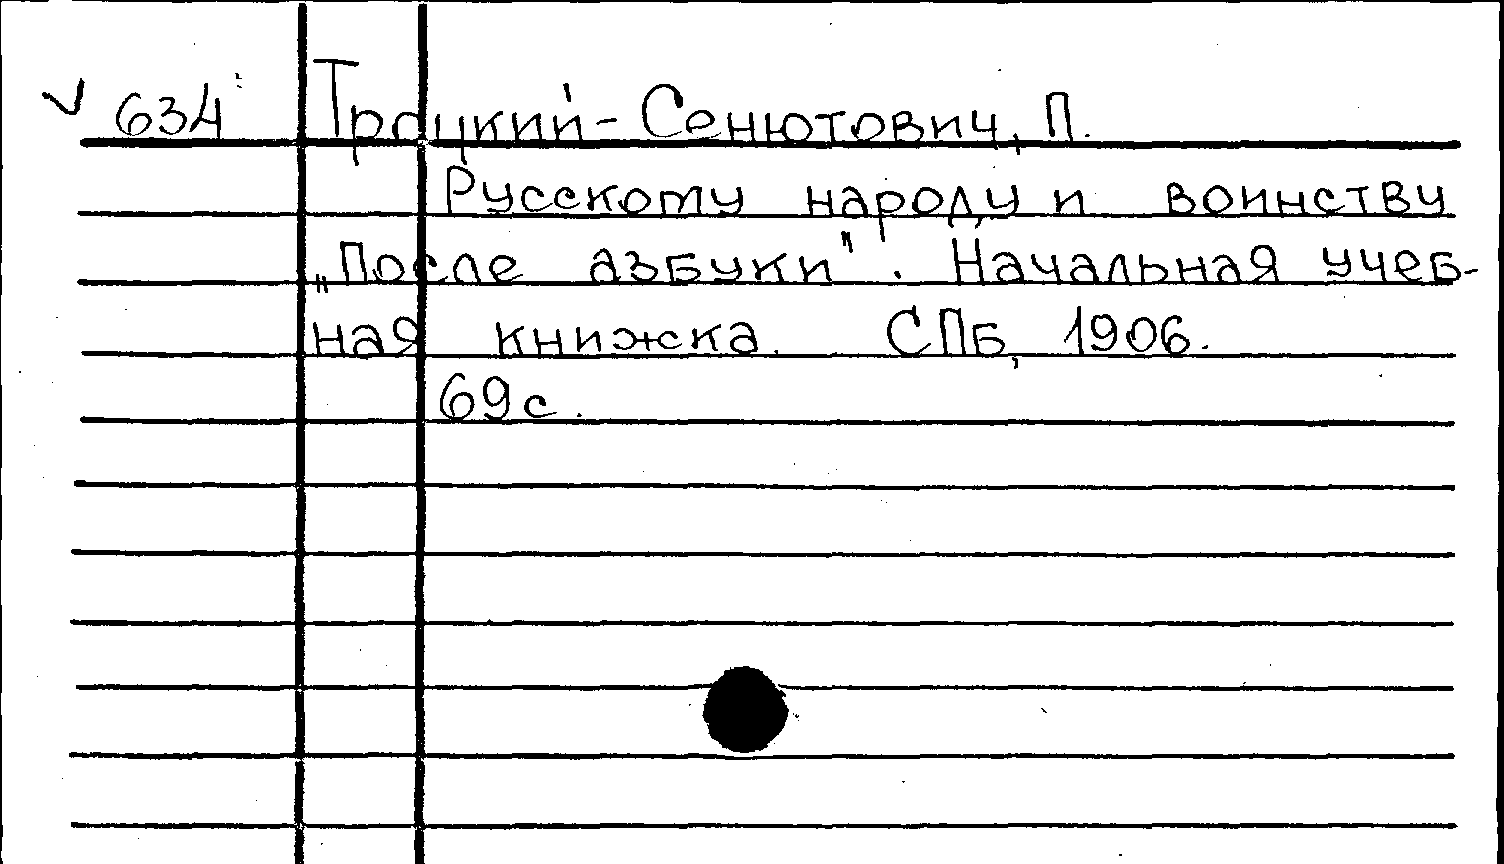 ✓ 634 Троцкий-Сенютович, П.
Русскому народу и воинству
„После азбуки". Начальная учеб-
ная книжка. СПб, 1906.
69с.